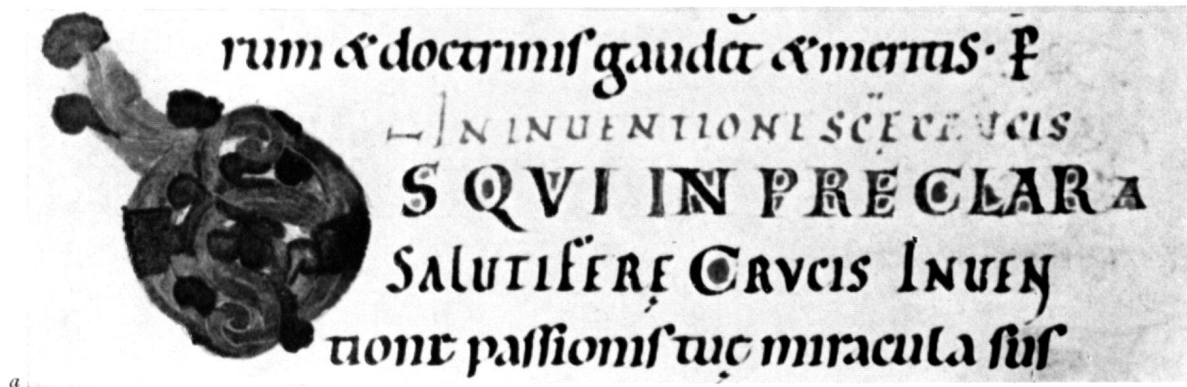 rum & doctrinis gaudet & meritis· P̱
IN INUENTIONE SC̄Ę CRUCIS
S QVI IN PRECLARA
SALUTIFERĘ CRVCIS INUEN
tione passionis tuę miracula sus
a